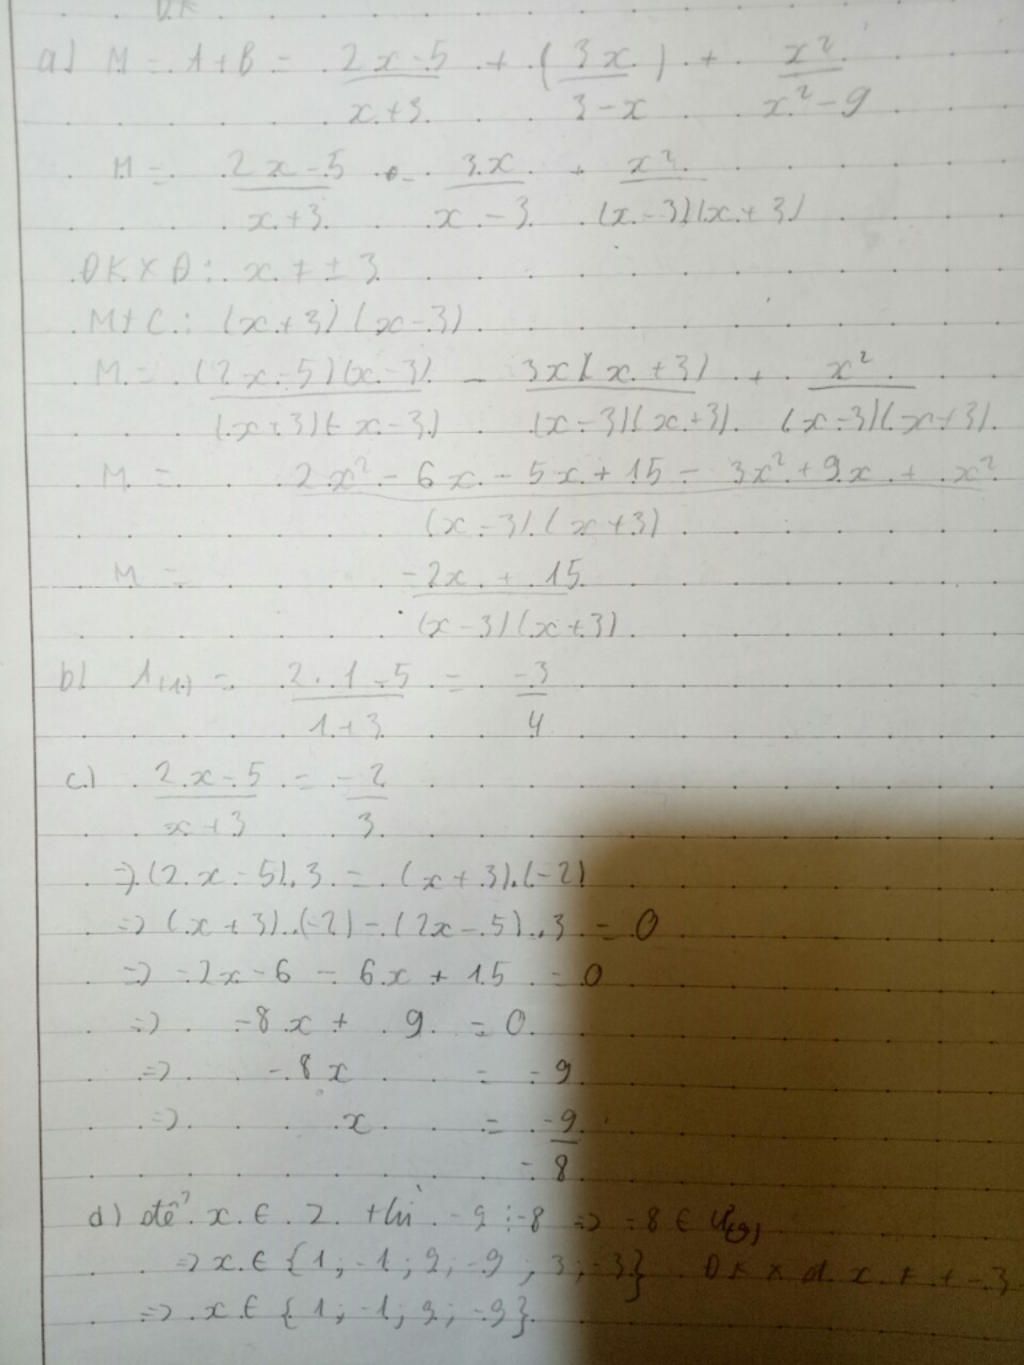 ĐK
a) M = A+B = 2x-5/x+3 + (3x/3-x) + x²/x²-9
M = 2x-5/x+3 - 3x/x-3 + x²/(x-3)(x+3)
ĐKXĐ: x ≠ ±3
MTC: (x+3)(x-3)
M = (2x-5)(x-3)/(x+3)(x-3) - 3x(x+3)/(x-3)(x+3) + x²/(x-3)(x+3)
M = 2x²-6x-5x+15-3x²+9x+x²/(x-3).(x+3)
M = -2x+15/(x-3)(x+3)
b) A(1) = 2.1-5/1+3 = -3/4
c) 2x-5/x+3 = -2/3
=> (2x-5).3 = (x+3).(-2)
=> (x+3).(-2)-(2x-5).3 = 0
=> -2x-6-6x+15 = 0
=> -8x+9 = 0
=> -8x = -9
=> x = -9/-8
d) để x ∈ Z thì -9 ⋮ -8 => -8 ∈ Ư(9)
=> x ∈ {1;-1;9;-9;3;-3} ĐKXĐ x ≠ +-3
=> x ∈ {1;-1;9;-9}